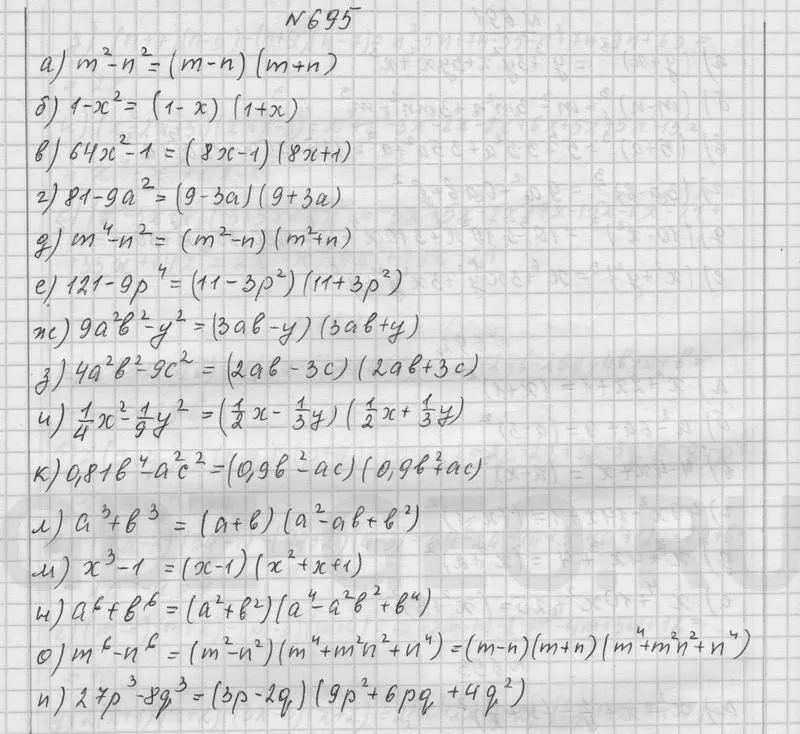 №695
а) m²-n²=(m-n)(m+n)
б) 1-x²=(1-x)(1+x)
в) 64x²-1=(8x-1)(8x+1)
г) 81-9a²=(9-3a)(9+3a)
д) m⁴-n²=(m²-n)(m²+n)
е) 121-9p⁴=(11-3p²)(11+3p²)
ж) 9a²b²-y²=(3ab-y)(3ab+y)
з) 4a²b²-9c²=(2ab-3c)(2ab+3c)
и) 1/4x²-1/9y²=(1/2x-1/3y)(1/2x+1/3y)
к) 0,81b⁴-a²c²=(0,9b²-ac)(0,9b²+ac)
л) a³+b³=(a+b)(a²-ab+b²)
м) x³-1=(x-1)(x²+x+1)
н) a⁶+b⁶=(a²+b²)(a⁴-a²b²+b⁴)
о) m⁶-n⁶=(m²-n²)(m⁴+m²n²+n⁴)=(m-n)(m+n)(m⁴+m²n²+n⁴)
п) 27p³-8q³=(3p-2q)(9p²+6pq+4q²)